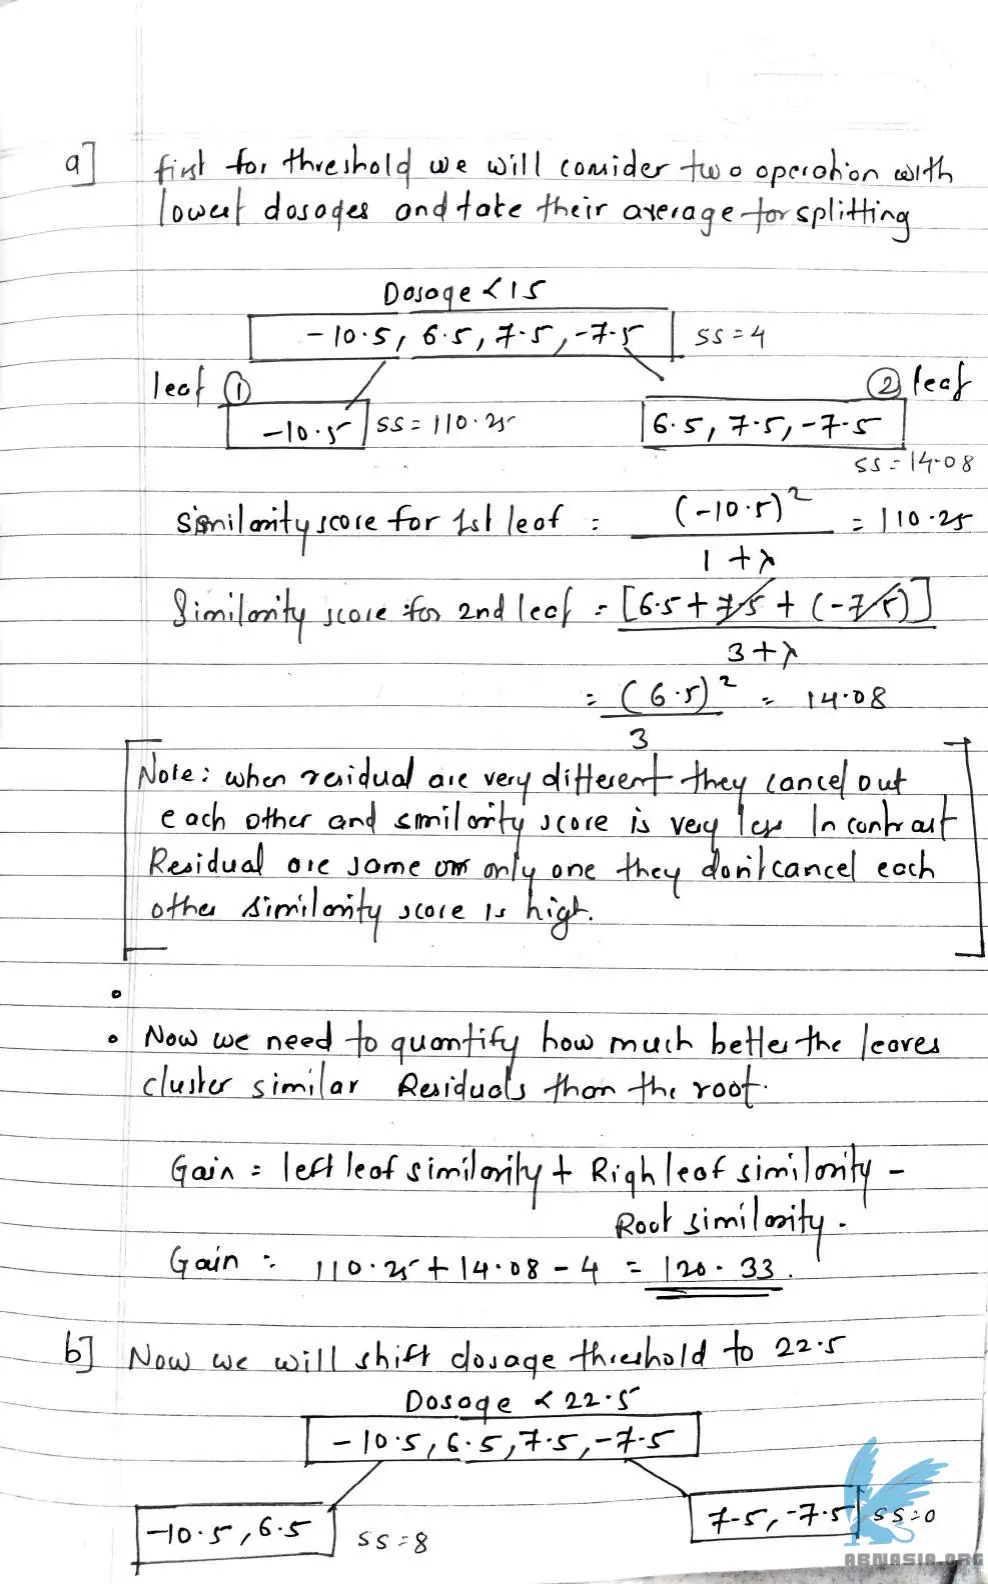 a] first for threshold we will consider two operation with
lowest dosages and take their average for splitting
Dosage < 15
-10.5, 6.5, 7.5, -7.5 ss = 4
leaf ① ② leaf
-10.5 ss = 110.25 6.5, 7.5, -7.5
ss = 14.08
Similarity score for 1st leaf = (-10.5)² / 1 + λ = 110.25
Similarity score for 2nd leaf = [6.5 + 7.5 + (-7.5)] / 3 + λ
= (6.5)² / 3 = 14.08
Note: when residual are very different they cancel out
each other and similarity score is very less In contrast
Residual are same or only one they don't cancel each
other similarity score is high.
• Now we need to quantify how much better the leaves
cluster similar Residuals than the root.
Gain = left leaf similarity + Righ leaf similarity -
Root similarity.
Gain = 110.25 + 14.08 - 4 = 120.33.
b] Now we will shift dosage threshold to 22.5
Dosage < 22.5
-10.5, 6.5, 7.5, -7.5
-10.5, 6.5 ss = 8 7.5, -7.5 ss = 0
ABNASIA.ORG